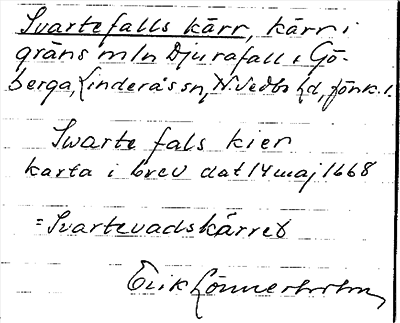 Svartefalls kärr, kärr i
gräns mln Djurafall o Gö-
berga, Linderås sn, N. Vedbo hd, Jönk. l.
Swarte fals kier
karta i brev dat 14 maj 1668
= Svartevadskärret
Erik Lönnerholm